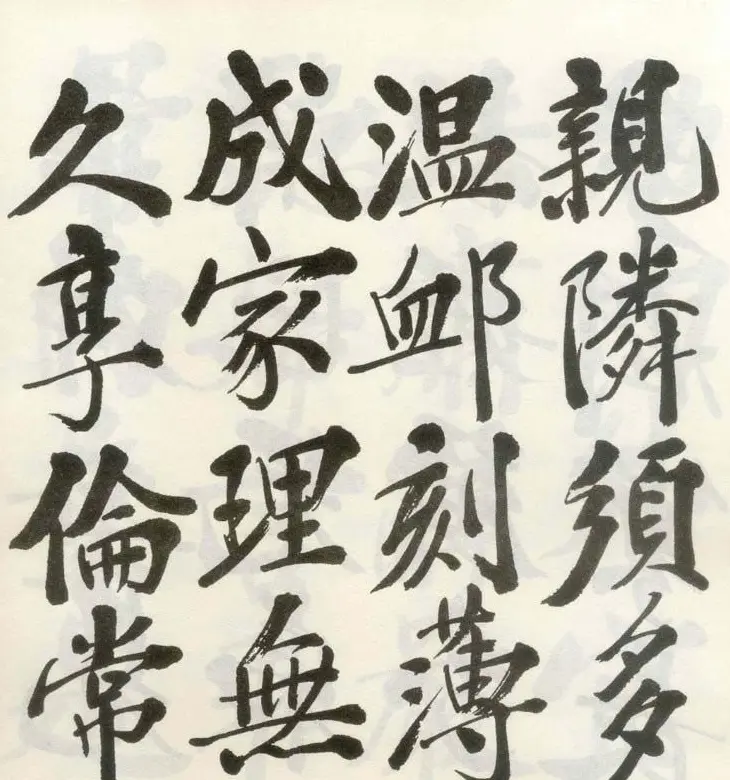 親隣須多
温卹刻薄
成家理無
久享倫常